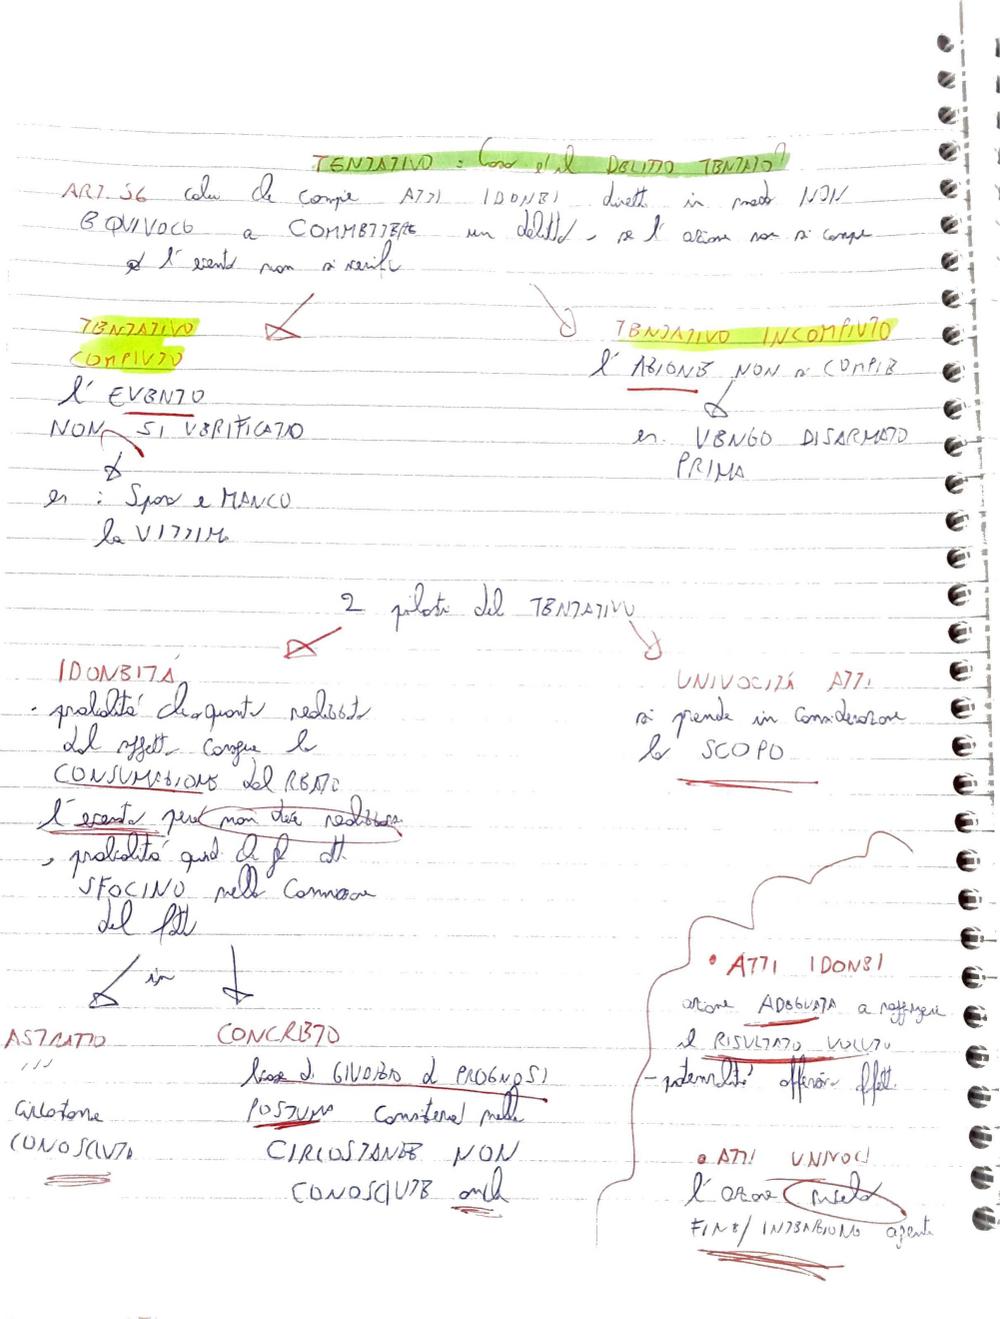 TENTATIVO : Cosa è il DELITTO TENTATO?
ART. 56 colui che compie ATTI IDONEI diretti in modo NON
EQUIVOCO a COMMETTERE un delitto, se l'azione non si compie
o l'evento non si verifica
TENTATIVO
COMPIUTO
l'EVENTO
NON SI VERIFICATO
es : Sparo e MANCO
la VITTIMA
TENTATIVO INCOMPIUTO
l'AZIONE NON si COMPIE
es. VENGO DISARMATO
PRIMA
2 pilastri del TENTATIVO
IDONEITÁ
- probabilitá che quanto
dal
CONSUMAZIONE del REATO
l'evento peró non deve
, probabilitá quindi che gli atti
SFOCINO nella
del fatto
in
ASTRATTO
CONOSCIUTA
CONCRETO
base di GIUDIZIO di PROGNOSI
POSTUMA
CIRCOSTANZE NON
CONOSCIUTE anche
UNIVOCITÁ ATTI
si prende in considerazione
lo SCOPO
• ATTI IDONEI
azione ADEGUATA a raggiungere
il RISULTATO VOLUTO
- potenzialitá
• ATTI UNIVOCI
l'azione rivela
FINE/INTENZIONE agente